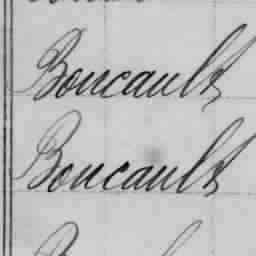 Boucault
Boucault